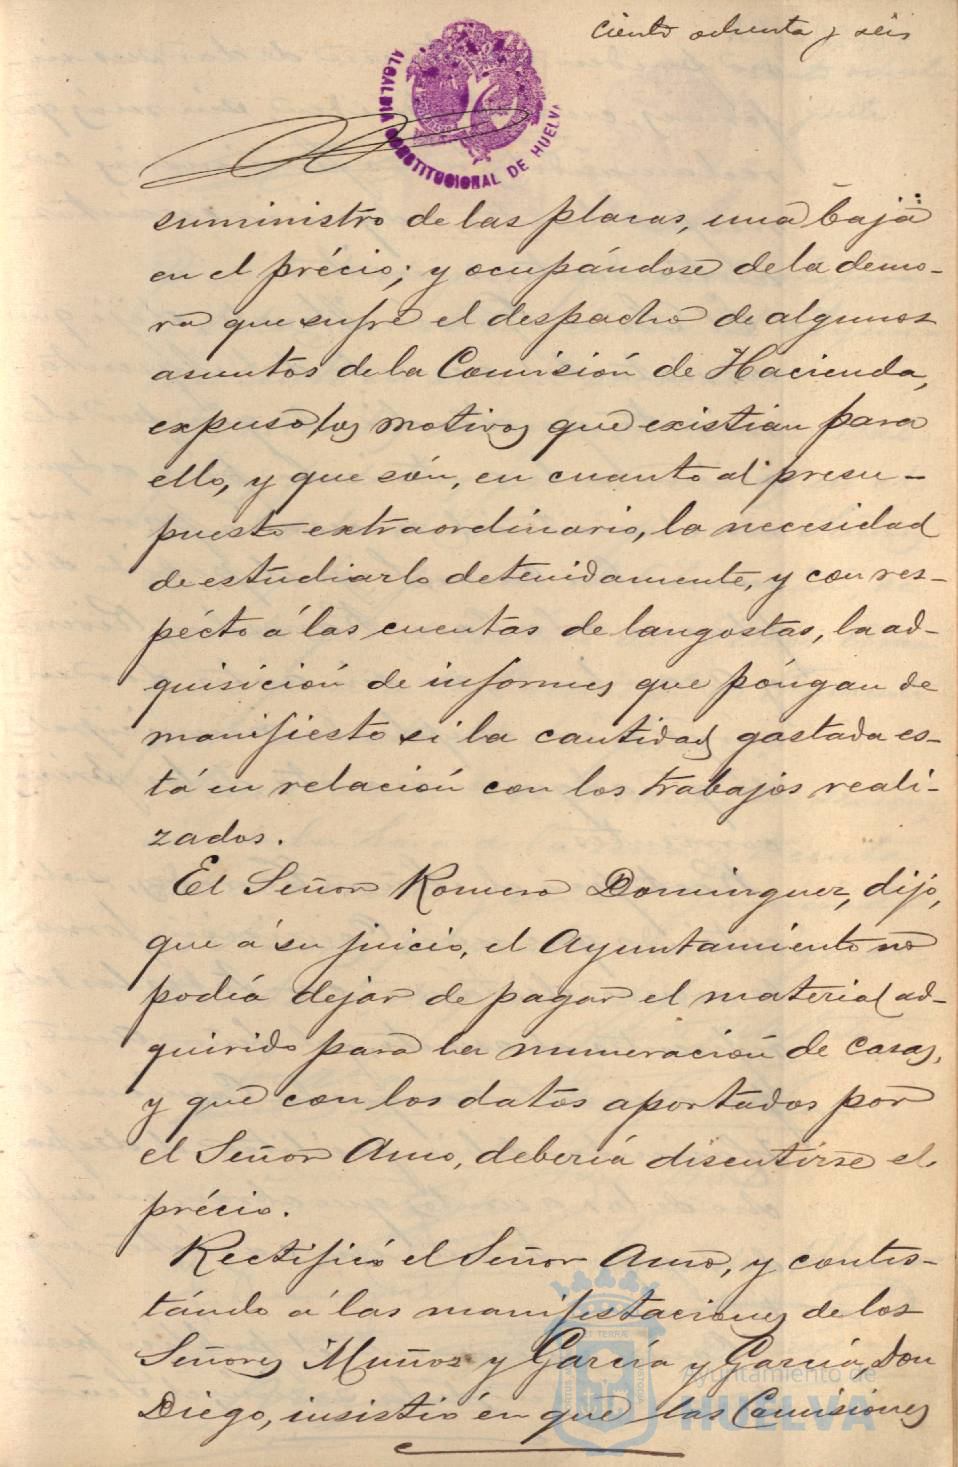 ciento ochenta y seis
ALCALDIA CONSTITUCIONAL DE HUELVA
suministro de las placas, una baja
en el précio; y ocupándose de la demo-
ra que sufre el despacho de algunos
asuntos de la Comisión de Hacienda,
expuso los motivos que existian para
ello, y que són, en cuanto al presu-
puesto extraordinario, la necesidad
de estudiarlo detenidamente, y con res-
pécto á las cuentas de langostas, la ad-
quisición de informes que póngan de
manifiesto si la cantidad gastada es-
tá en relación con los trabajos reali-
zados.
El Señor Romero Dominguez, dijo,
que á su juicio, el Ayuntamiento no
podía dejar de pagar el material ad-
quirido para la numeración de casas,
y que con los datos aportados por
el Señor Amo, debería discutirse el
précio.
Rectificó el Señor Amo, y contes-
tándo á las manifestaciones de los
Señores Muñoz y García y García, Don
Diego, insistió en que las Comisiones
Ayuntamiento de
HUELVA